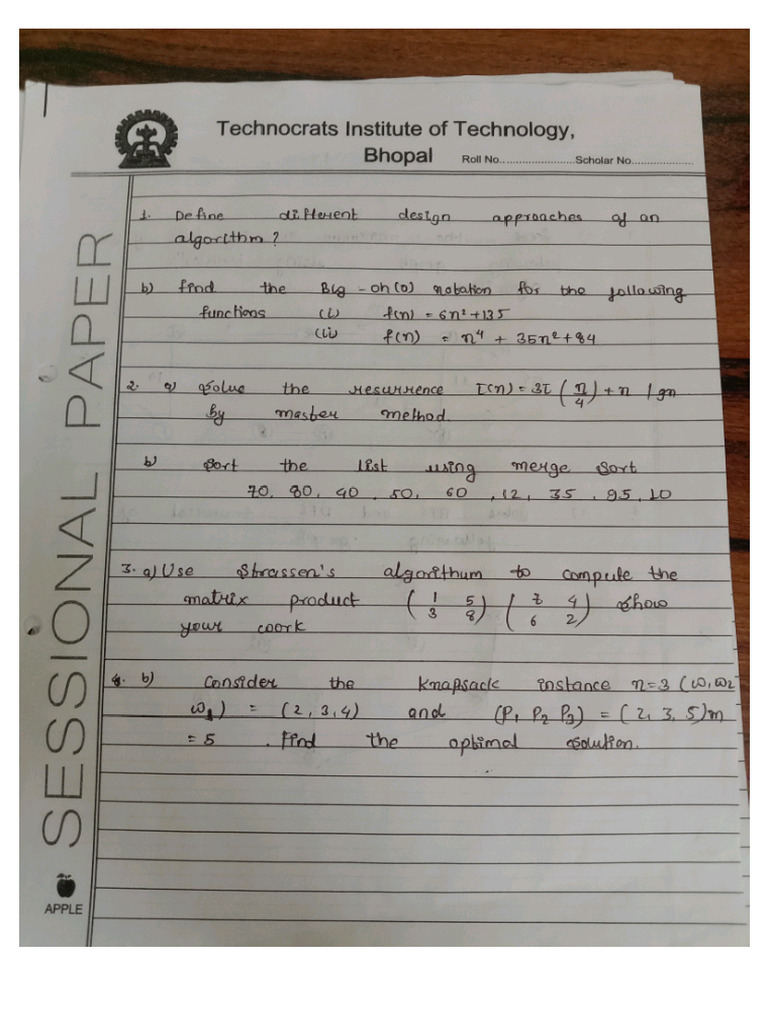 Technocrats Institute of Technology,
Bhopal Roll No........................Scholar No...................
SESSIONAL PAPER
APPLE
1. Define different design approaches of an
algorithm?
b) find the Big-oh(o) notation for the following
functions (i) f(n) = 6n²+135
(ii) f(n) = n⁴ + 35n²+84
2. a) Solve the resurrence T(n) = 3T (n/4) + n lgn
by master method.
b) Sort the list using merge sort
70, 80, 40, 50, 60, 12, 35, 95, 10
3. a) Use Strassen's algorithum to compute the
matrix product (1 5 (7 4 show
3 8) 6 2)
your work
4. b) Consider the Knapsack instance n=3 (w, w2
w1) = (2, 3, 4) and (P1 P2 P3) = (2, 3, 5)m
= 5. Find the optimal solution.